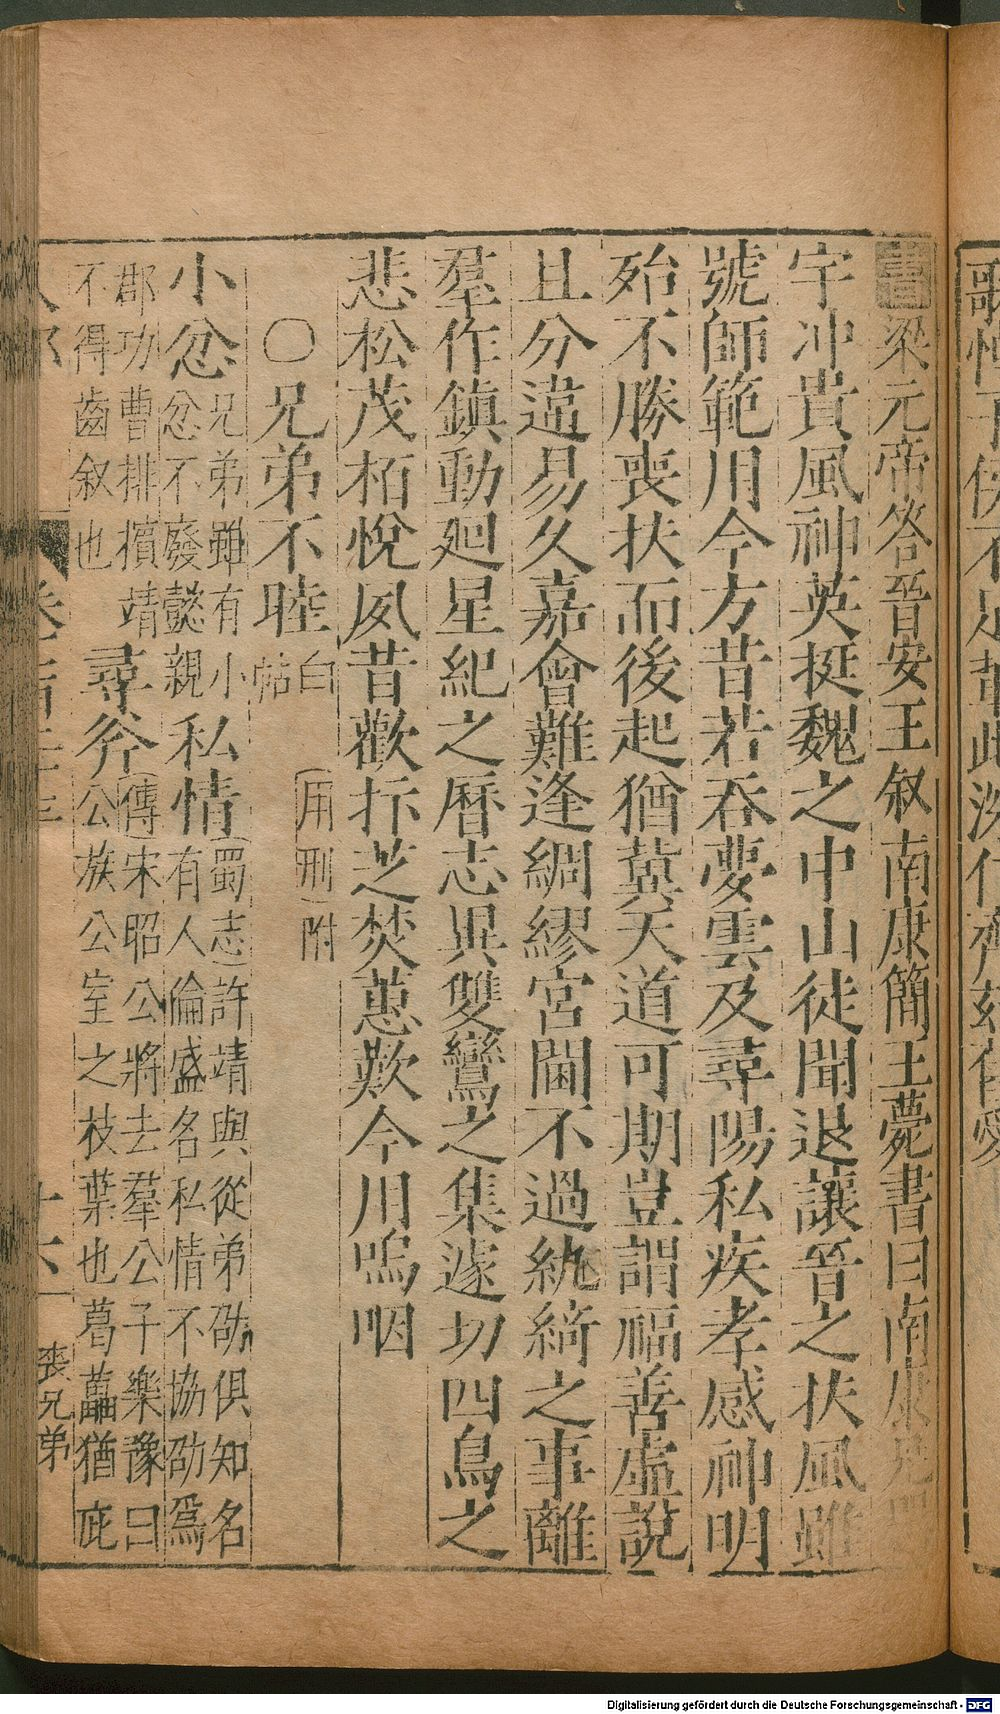 歌性子侯不足
書梁元帝答晉安王叙南康簡王薨書曰南康兄
字冲貴風神英挺魏之中山徒聞退讓晉之扶風雖
號師範用今方昔若吞夢雲及尋陽私疾孝感神明
殆不勝喪扶而後起猶冀天道可期豈謂福善虛說
且分違易久嘉會難逢綢繆宮閫不過紈綺之事離
羣作鎮動廻星紀之曆志異雙鸞之集遽切四鳥之
悲松茂栢悅夙昔歡抃芝焚蕙歎今用嗚咽
〇兄弟不睦白帖(用刑)附
小忿兄弟雖有小忿不廢懿親私情(蜀志)許靖與從弟劭俱知名有人倫盛名私情不協劭爲
郡功曹排擯靖不得齒叙也尋斧(傳)宋昭公將去羣公子樂豫曰公族公室之枝葉也葛藟猶庇
十六 喪兄弟
Digitalisierung gefördert durch die Deutsche Forschungsgemeinschaft - DFG